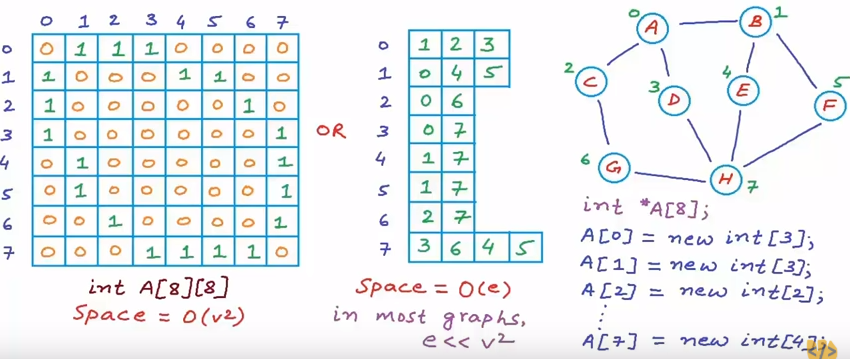 0 1 2 3 4 5 6 7
0 0 1 1 1 0 0 0 0
1 1 0 0 0 1 1 0 0
2 1 0 0 0 0 0 1 0
3 1 0 0 0 0 0 0 1
4 0 1 0 0 0 0 0 1
5 0 1 0 0 0 0 0 1
6 0 0 1 0 0 0 0 1
7 0 0 0 1 1 1 1 0
int A[8][8]
Space = O(v²)
OR
0 1 2 3
1 0 4 5
2 0 6
3 0 7
4 1 7
5 1 7
6 2 7
7 3 6 4 5
Space = O(e)
in most graphs,
e << v²
0 A B 1
2 C 3 D 4 E F 5
6 G H 7
int *A[8];
A[0] = new int[3];
A[1] = new int[3];
A[2] = new int[2];
⋮
A[7] = new int[4];